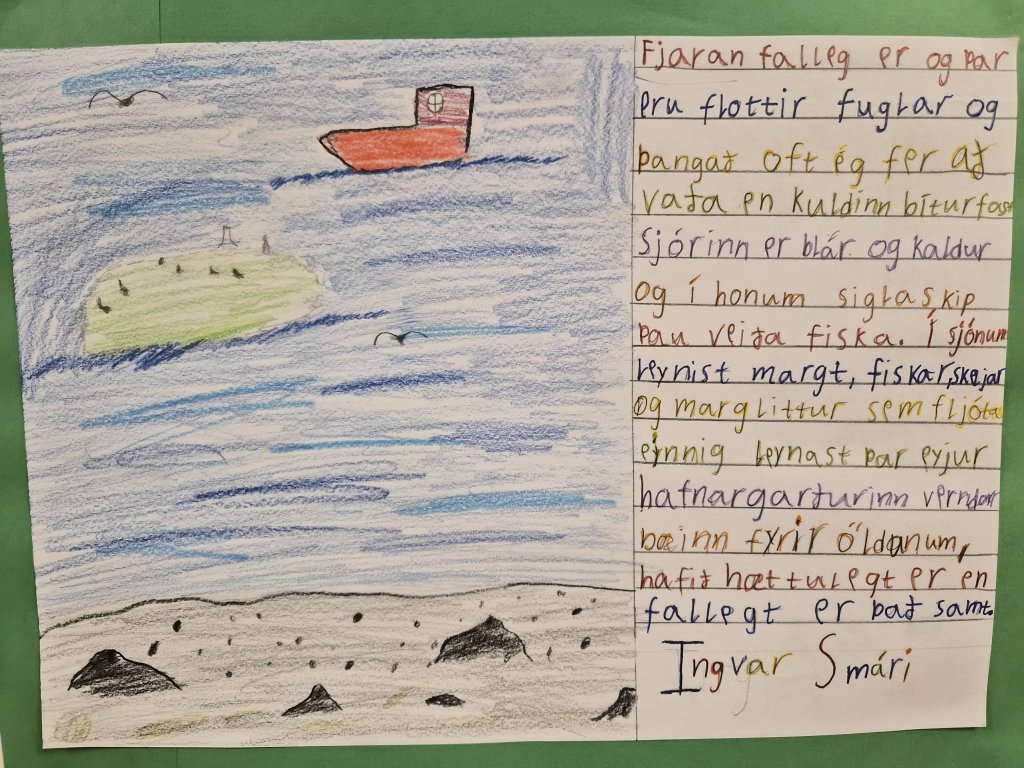 Fjaran falleg er og þar
eru flottir fuglar og
þangað oft ég fer að
vaða en kuldinn bítur fast
Sjórinn er blár og kaldur
og í honum sigla skip
þau veiða fiska. Í sjónum
leynist margt, fiskar, skeljar
og marglittur sem fljóta
einnig leynast þar eyjur
hafnargarðurinn verndar
bæinn fyrir öldunum,
hafið hættulegt er en
fallegt er það samt.
Ingvar Smári